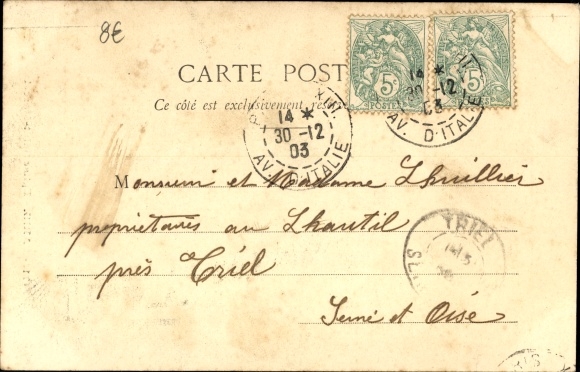 8€
CARTE POST
Ce côté est exclusivement réservé
5 5
POSTES
14 *
30 -12
03
AV. D'ITALIE
14 *
30 -12
03
AV. D'ITALIE
Monsieur et Madame Lhuillier
propriétaires au Lhautil
près Triel
Seine et Oise
TRIEL